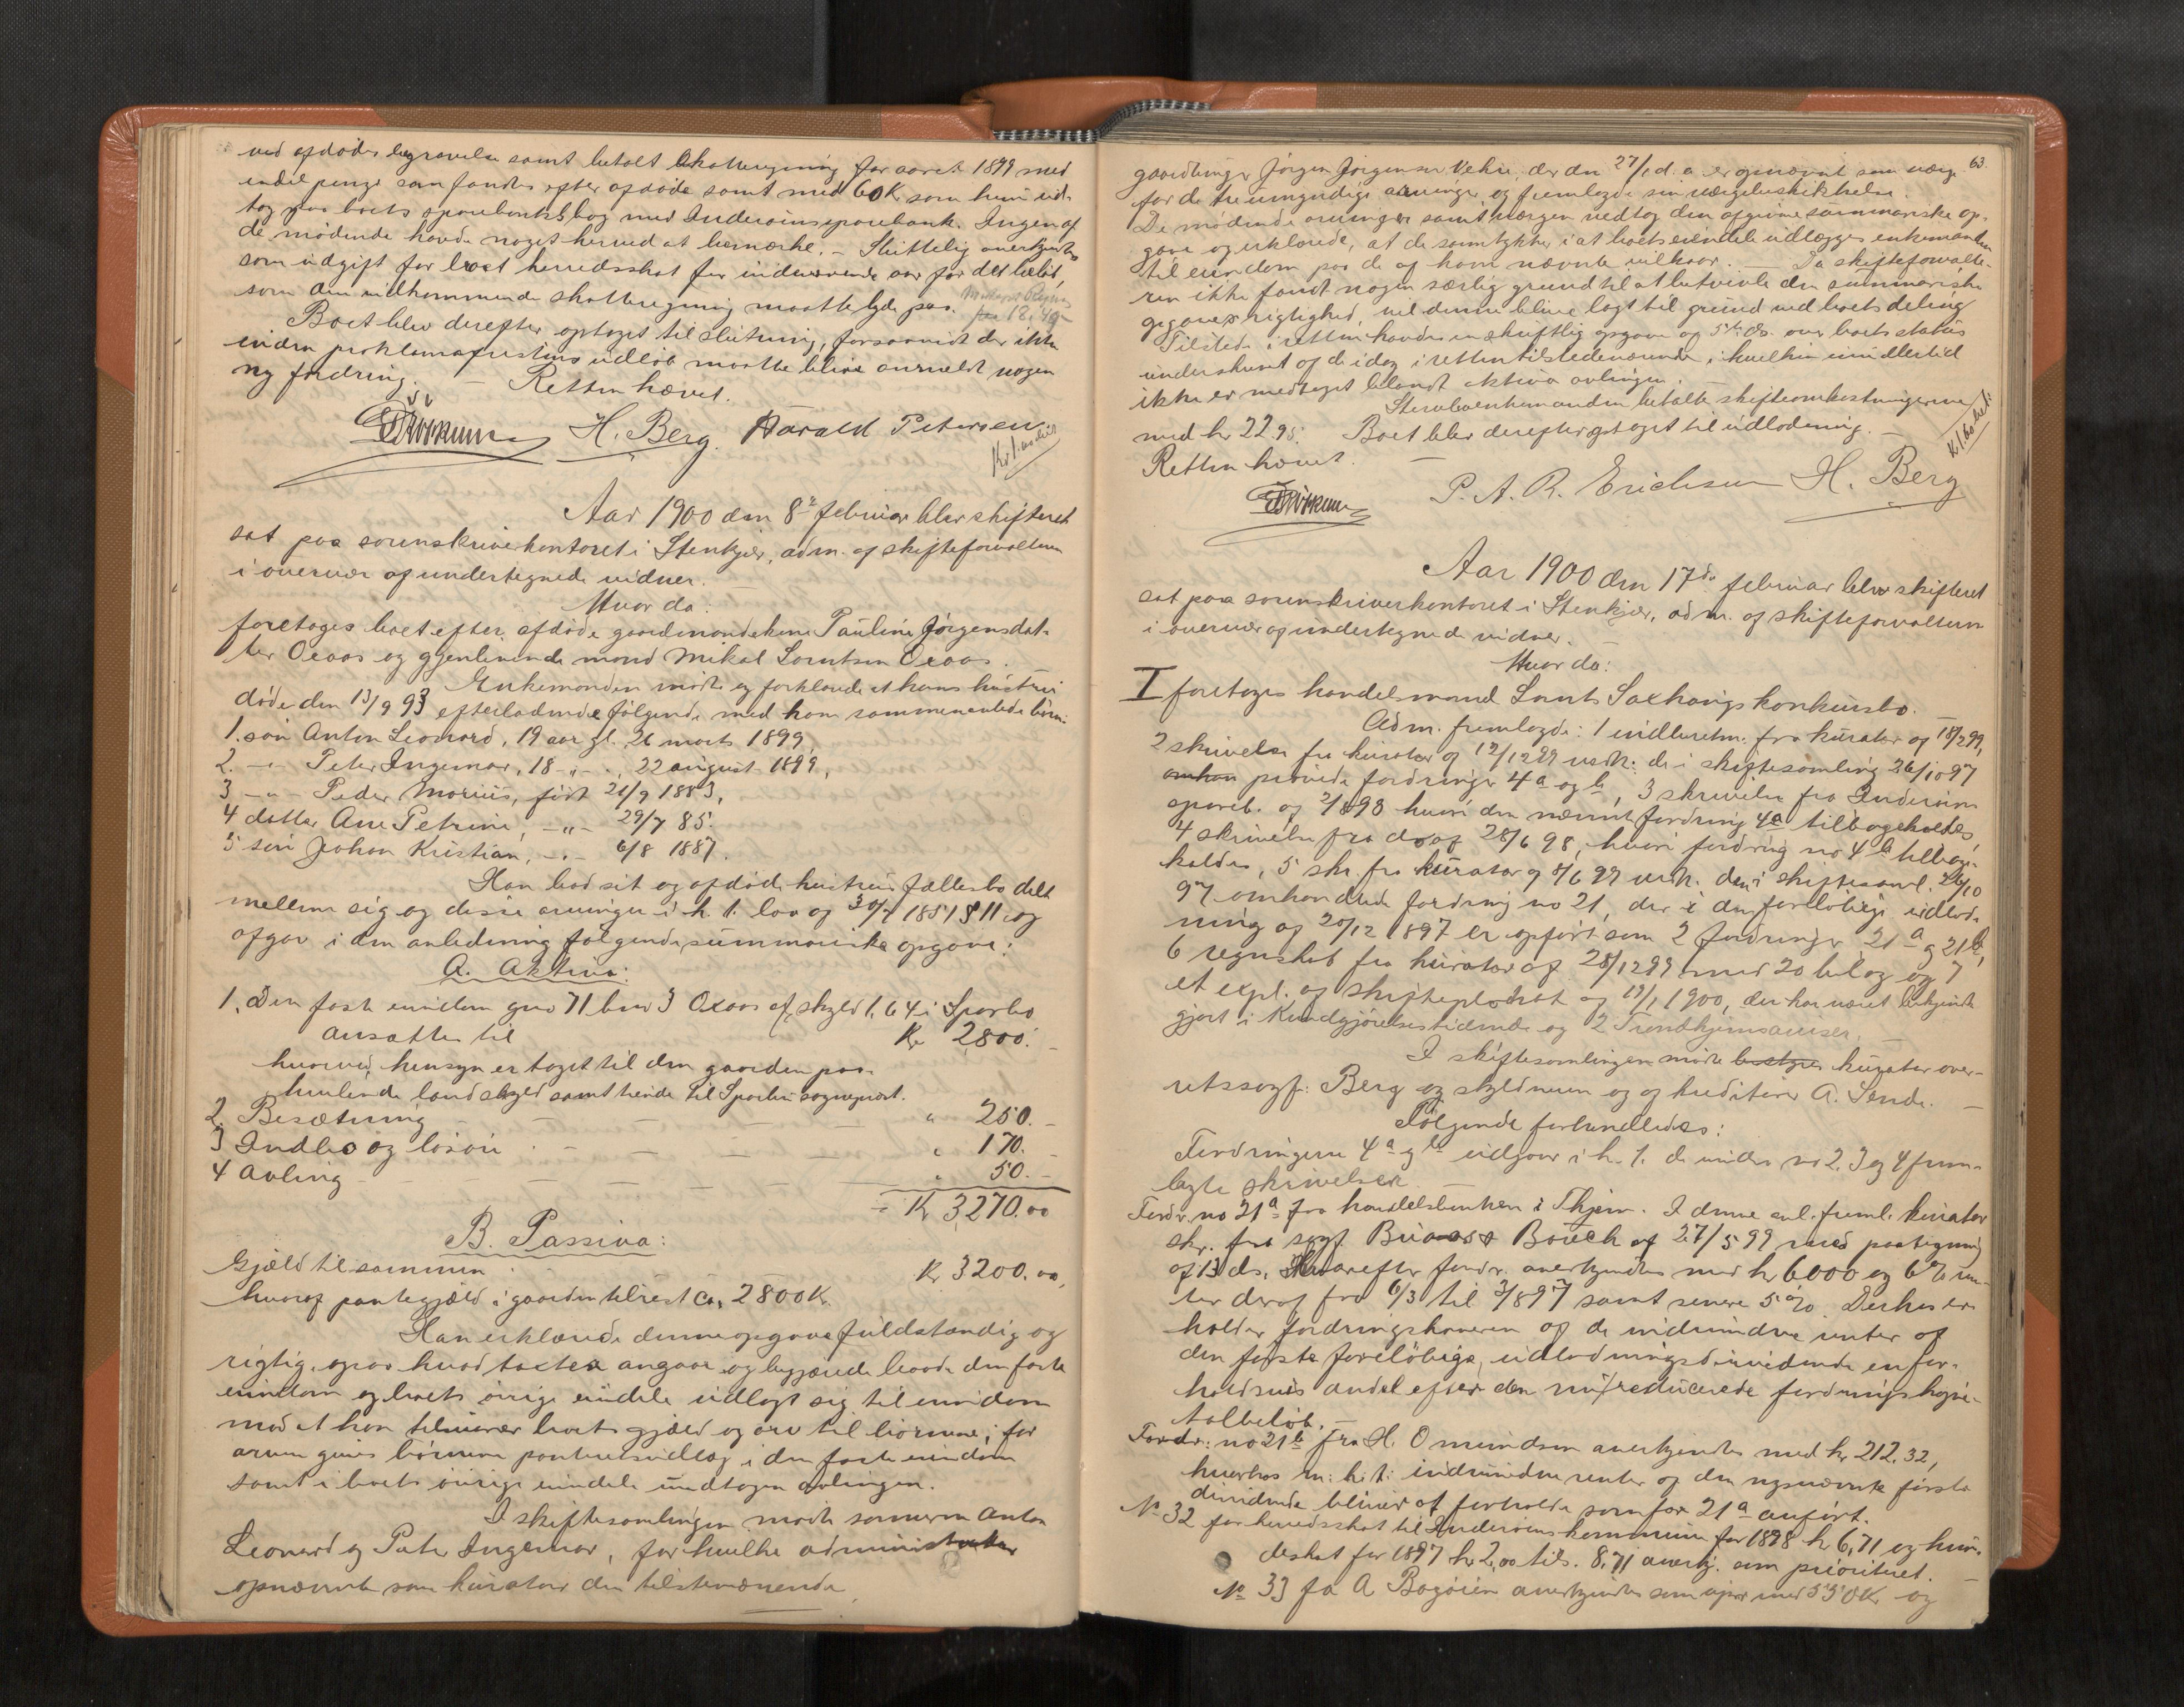 ved afdødes begravelse samt betalt skatteregning for aaret 1899 med
endel penge som fandtes efter afdøde samt med 60 K som hun ud-
tog paa boets sparebankbog med Inderøens sparebank. Ingen af
de mødende havde noget herved at bemærke. – Sluttelig anerkjendtes
som udgift for boet herredsskat for indeværende aar for det beløb,
som den vedkommende skatteregning maatte lyde paa.
Boet blev derefter optaget til slutning, forsaavidt der ikke
inden proklamafristens udløb maatte blive anmeldt nogen
ny fordring. – Retten hævet.
H. Berg. Harald Petersen.
Aar 1900 den 8de februar blev skifteret
sat paa sorenskriverkontoret i Stenkjær, adm. af skifteforvalteren
i overvær af undertegnede vidner.
Hvor da:
foretages boet efter afdøde gaardmandskone Pauline Jørgensdat-
ter Oxaas og gjenlevende mand Mikal Lorntsen Oxaas.
Enkemanden mødte og forklarede at hans hustru
døde den 13/9 93 efterladende følgende med ham sammenavlede børn:
1. søn Anton Leonard, 19 aar gl. 26 marts 1899,
2. –"– Peter Ingemar, 18 –"– , 22 august 1899,
3 –"– Peder Marius, født 21/9 1883,
4 datter Ane Petrine, –"– 29/7 85.
5 søn Johan Kristian, –"– 6/8 1887.
Han bad sit og afdøde hustrus fællesbo delt
mellem sig og disse arvinger i h. t. lov af 30/7 1851 § 11 og
afgav i den anledning følgende summariske opgave:
A. Aktiva:
1. Den faste eiendom gno 71 bno 3 Oxaas af skyld 1,64 i Sparbo
ansattes til Kr 2800. –
hvorved hensyn er taget til den gaarden paa-
hvilende landskyld samt tiende til Sparbu sogneprest.
2. Besætning – " 250. –
3 Indbo og løsøre – " 170. –
4 Avling – " 50. –
= Kr 3270.00
B. Passiva:
Gjæld tilsammen Kr 3200.00,
hvoraf pantegjæld i gaarden tilrest ca. 2800 K.
Han erklærede denne opgave fuldstændig og
rigtig, ogsaa hvad taxter angaar og begjærede baade den faste
eiendom og boets øvrige eiendele udlagt sig til eiendom
mod at han tilsvarer boets gjæld og arv til børnene; for
arven gives børnene panteretsudlæg i den faste eiendom
samt i boets øvrige eiendele undtagen avlingen.
I skiftesamlingen mødte sønnerne Anton
Leonard og Peter Ingemar, for hvilke administrator
opnævnte som kurator den tilstedeværende
63.
gaardbruger Jørgen Jørgensen Vehre, der den 27/1 d. a. er opnævnt som værge
for de tre umyndige arvinger og fremlagde sin værgebeskikkelse.
De mødende arvinger samt værgen vedtog den afgivne summariske op-
gave og erklærede, at de samtykker i at boets eiendele udlægges enkemanden
til eiendom paa de af ham nævnte vilkaar. Da skifteforvalte-
ren ikke fandt nogen særlig grund til at betvivle den summariske
opgaves rigtighed, vil denne blive lagt til grund ved boets deling
Tilstede i retten havdes en skriftlig opgave af 5te ds. over boets status
underskrevet af de idag i retten tilstedeværende, i hvilken imidlertid
ikke er medtaget blandt aktiva avlingen.
Stervboenkemanden betalte skifteomkostningerne
med kr 22.95. Boet blev derefter optaget til udlodning. –
Retten hævet. –
P. A. R. Erichsen H. Berg
Aar 1900 den 17de februar blev skifteret
sat paa sorenskriverkontoret i Stenkjær, adm. af skifteforvalteren
i overvær af undertegnede vidner.
Hvor da:
I foretages handelsmand Lornts Saxhaugs konkursbo.
Adm. fremlagde: 1 indberetn. fra kurator af 18/2 99,
2 skrivelse fra kurator af 19/12 99 vedk. de i skiftesamling 26/10 97
prøvede fordringer 4a og b, 3 skrivelse fra Inderøens
spareb. af 2/8 98 hvori den nævnt fordring 4a tilbageholdes,
4 skrivelse fra do af 28/6 98, hvori fordring no 4b tilbage-
holdes, 5 skr. fra kurator af 8/6 99 vedk. den i skiftesaml. 26/10
97 omhandlede fordring no 21, der i den foreløbige udlod-
ning af 20/12 1897 er opført som 2 fordringer 21a og 21b,
6 regnskab fra kurator af 28/12 99 med 20 bilag og 7
et expl. af skifteplakat af 19/1 1900, der har været bekjendt-
gjort i Kundgjørelsestidende og 2 Trondhjemsaviser. –
I skiftesamlingen mødte kurator over-
retssagf. Berg og skyldneren og af kreditorer A. Sende. –
Følgende forhandledes:
Fordringerne 4a og b udgaar i h. t. de under no 2, 3 og 4 frem-
lagte skrivelser.
Fordr. no 21a fra handelsbanken i Thjem. I denne anl. freml. kurator
skr. fra sagf. Bouck af 27/5 99 med paategning
af 13 ds. Hvorefter fordr. anerkjendtes med kr 6000 og 6% ren-
ter deraf fra 6/3 til 3/8 97 samt senere 5%. Derhos er-
holder fordringshaveren af de indvundne renter af
den første foreløbige udlodningsdividende en for-
holdsvis andel efter den nu reducerede fordrings kapi-
talbeløb. –
Fordr. no 21b fra H. Omundsen anerkjendes med kr. 212,32,
hvorhos m. h. t. indvundne renter og den nysnævnte første
dividende bliver at forholde som for 21a anført.
No 32 for herredsskat til Inderøens kommune for 1898 kr 6,71 og hun-
deskat for 1897 kr 2,00 tils. 8,71 anerkj. som prioriteret. –
No 33 fra A Bagøien anerkjendes som upr med 550 K og